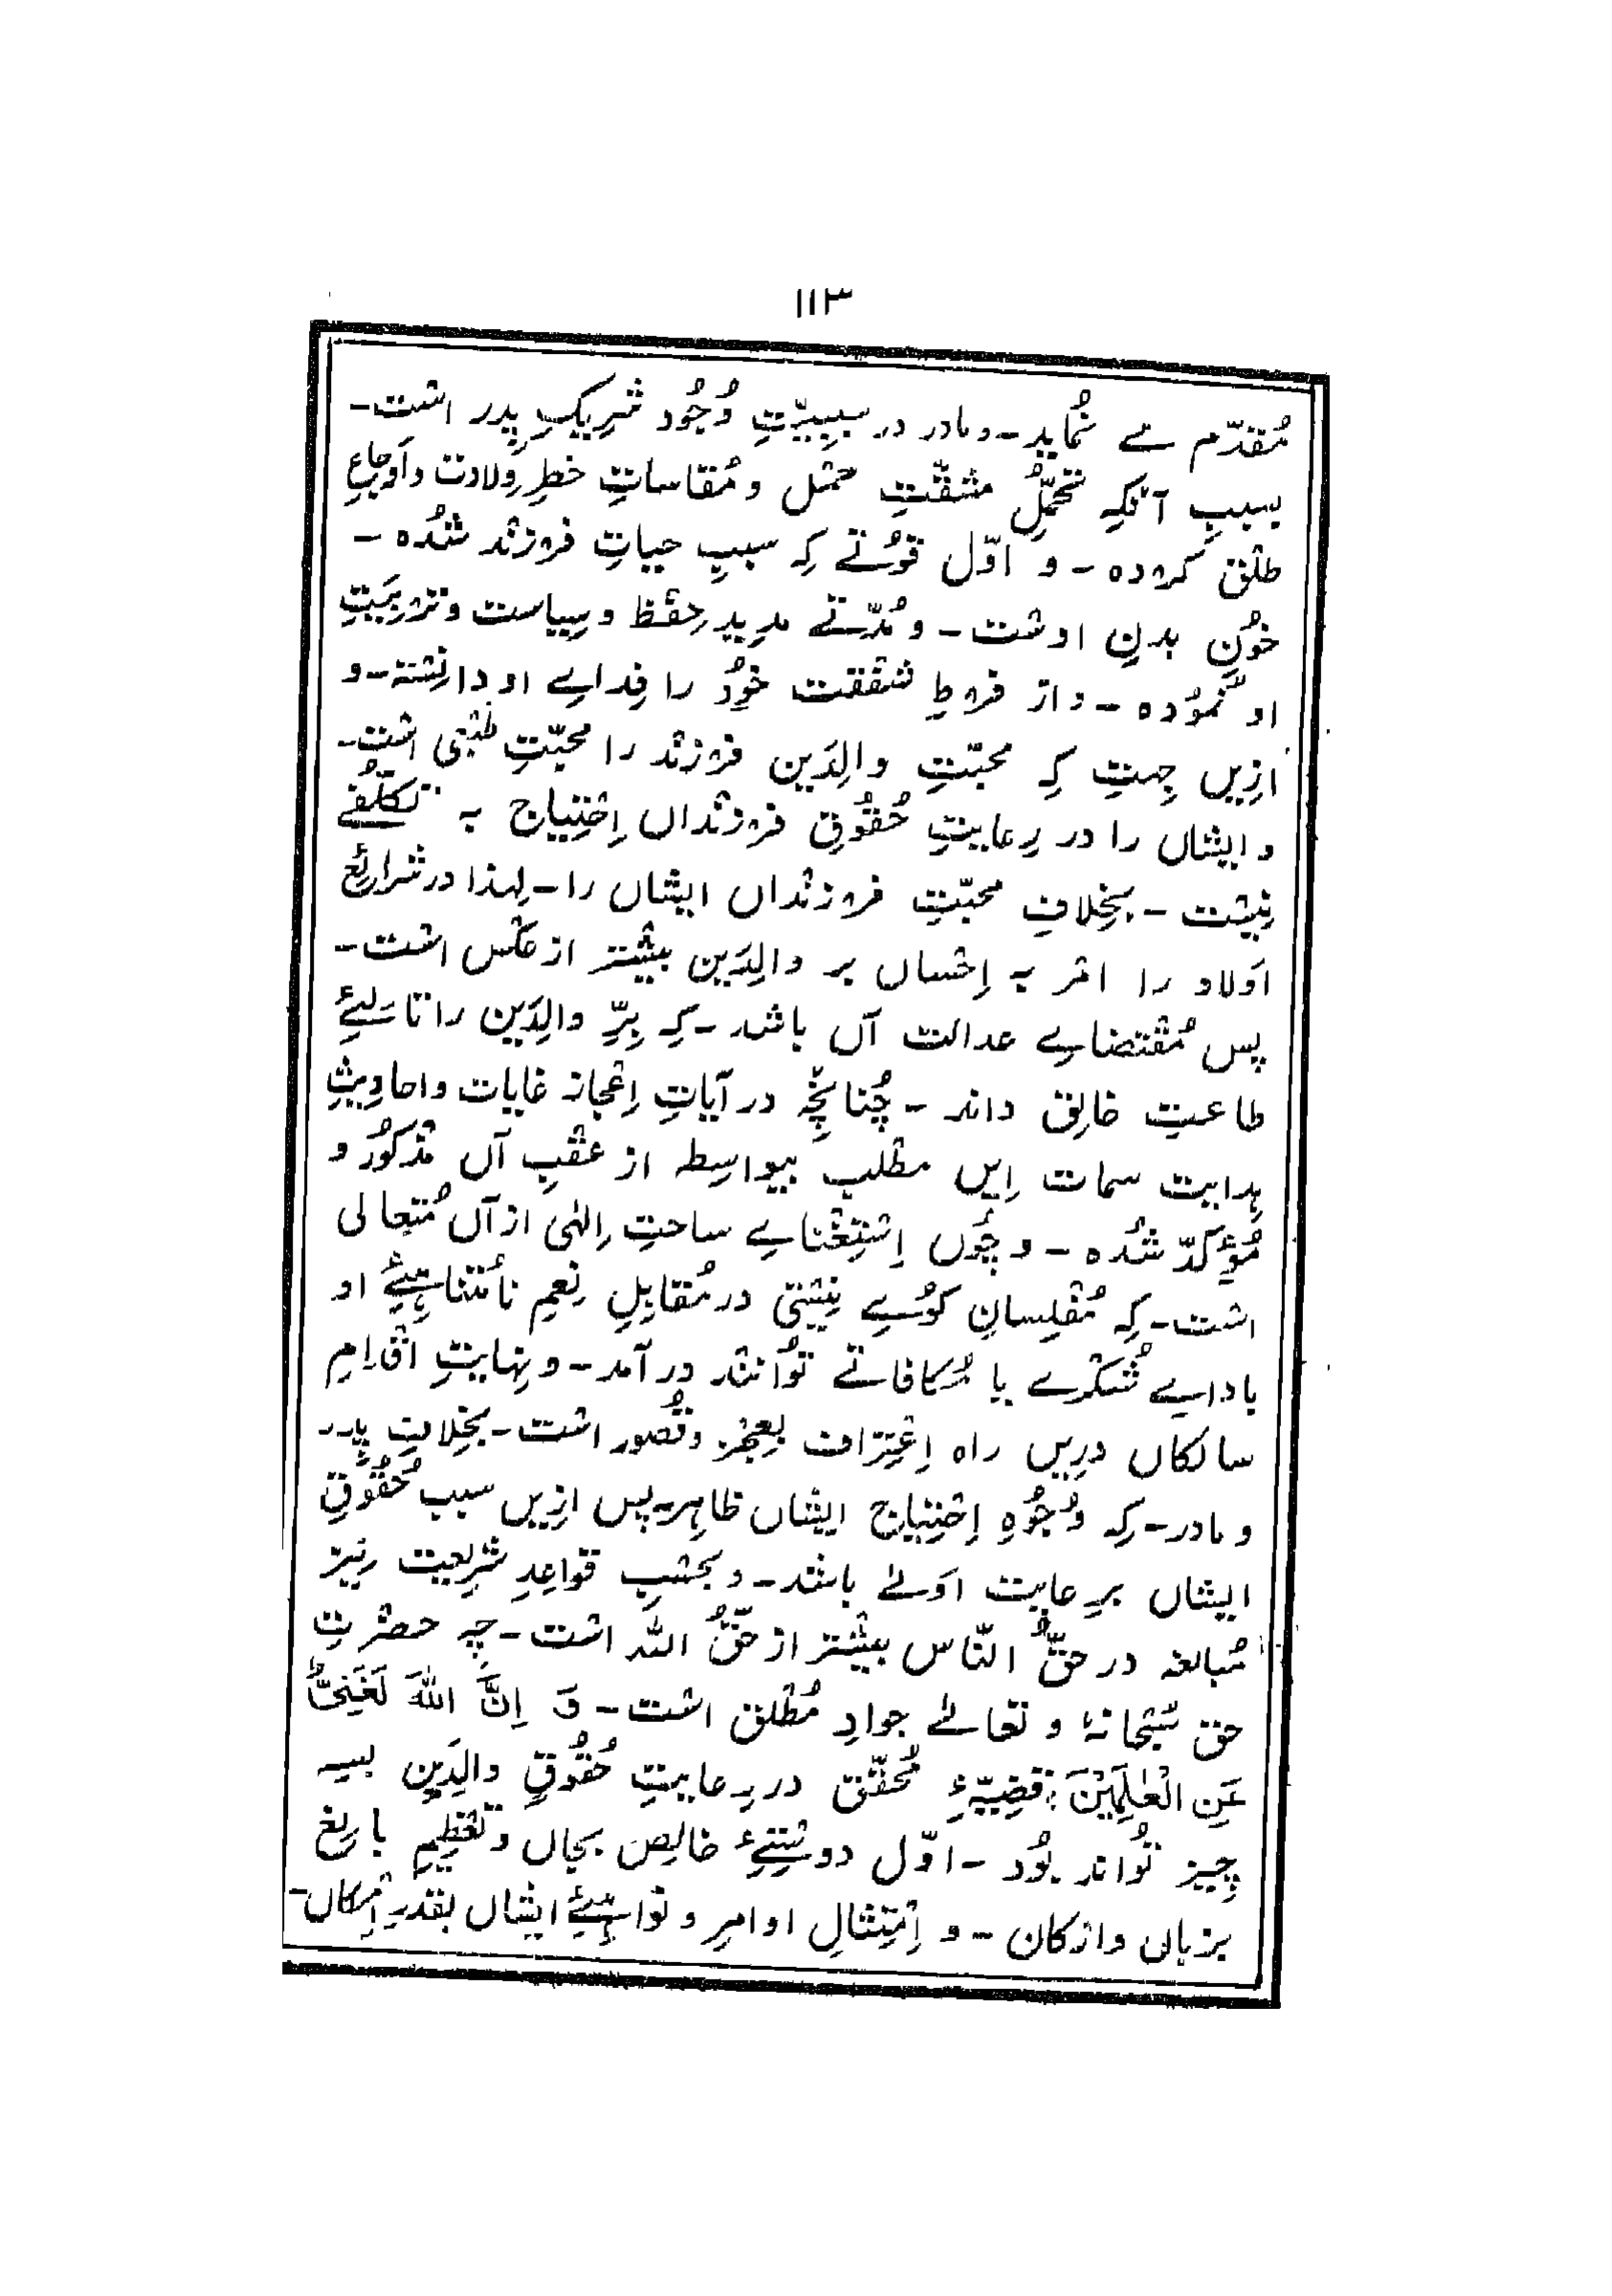 ۱۱۳
مُقدّم مے نُماید ـ و مادر در سببیّتِ وُجُود شرِیکِ پِدر اشت ـ
بسببِ آنکہ تحمُّلِ مشقّتِ حمْل و مُقاساتِ خطرِ ولادت و اَوجاعِ
طلْق کردہ ـ و اوّل قُوتے کِہ سببِ حیاتِ فرزند شُدہ ـ
خُونِ بدنِ اوشت ـ و مُدّتے مدِید حِفْظ و سِیاست و تربیَتِ
او نمُودہ ـ و از فرطِ شفقت خود را فِداے او دانِشتہ ـ و
ازِیں جِہت کِہ محبّتِ والِدَین فرزند را محبّتِ طبْعی اشت ـ
و ایشاں را در رِعایتِ حُقُوقِ فرزنداں اِحْتِیاج بہ تکلُّفے
نِیشت ـ بخِلافِ محبّتِ فرزنداں ایشاں را ـ لِہذا در شرائعِ
اَولاد را امْر بہ اِحْساں بر والِدَین بیشْتر از عکْس اشت ـ
پس مُقْتضاے عدالت آں باشد ـ کِہ بِرِّ والِدَین را تالیٔے
طاعتِ خالِق داند ـ چُنانچِہ در آیاتِ اِعْجاز غایات و احادِیثِ
ہِدایت سمات اِیں مطلب بیواسِطہ از عقْبِ آں مذْکُور و
مُؤکّد شُدہ ـ و چُوں اِسْتِغْناے ساحتِ اِلٰہی از آں مُتعالی
اشت ـ کِہ مُفْلِسانِ کُوے نِیشتی در مُقابِلِ نِعمِ نامُتناہِیٔے او
باداے شُکْرے یا مُکافاتے توانند در آمد ـ و نِہایتِ اقْدامِ
سالکاں درِیں راہ اِعْتِراف بعِجْز و قُصور اشت ـ بخِلافِ پِدر
و مادر ـ کِہ وُجُوہِ اِحْتِیاج ایشاں ظاہِر پس ازِیں سبب حُقُوقِ
ایشاں برِعایت اَولےٰ باشد ـ و بحسْبِ قواعِدِ شرِیعت نِیز
مُبالغہ در حقُّ النّاس بیشْتر از حقُّ اللہ اشت ـ چِہ حضْرتِ
حق سُبْحانہٗ و تعالےٰ جوادِ مُطْلق اشت ـ وَ اِنَّ اللّٰہَ لَغَنِیٌّ
عَنِ الْعٰلَمِیْنَ : قضِیّۂِ مُحقّق در رِعایتِ حُقُوقِ والِدَین بسہ
چِیز تواند بُود ـ اوّل دوشتیِٔ خالِص بجاں و تعْظِیمِ بالِغ
بزباں و ارْکان ـ و اِمْتِثالِ اوامِر و نواہِیٔے ایشاں بقدْرِ اِمْکاں ـ